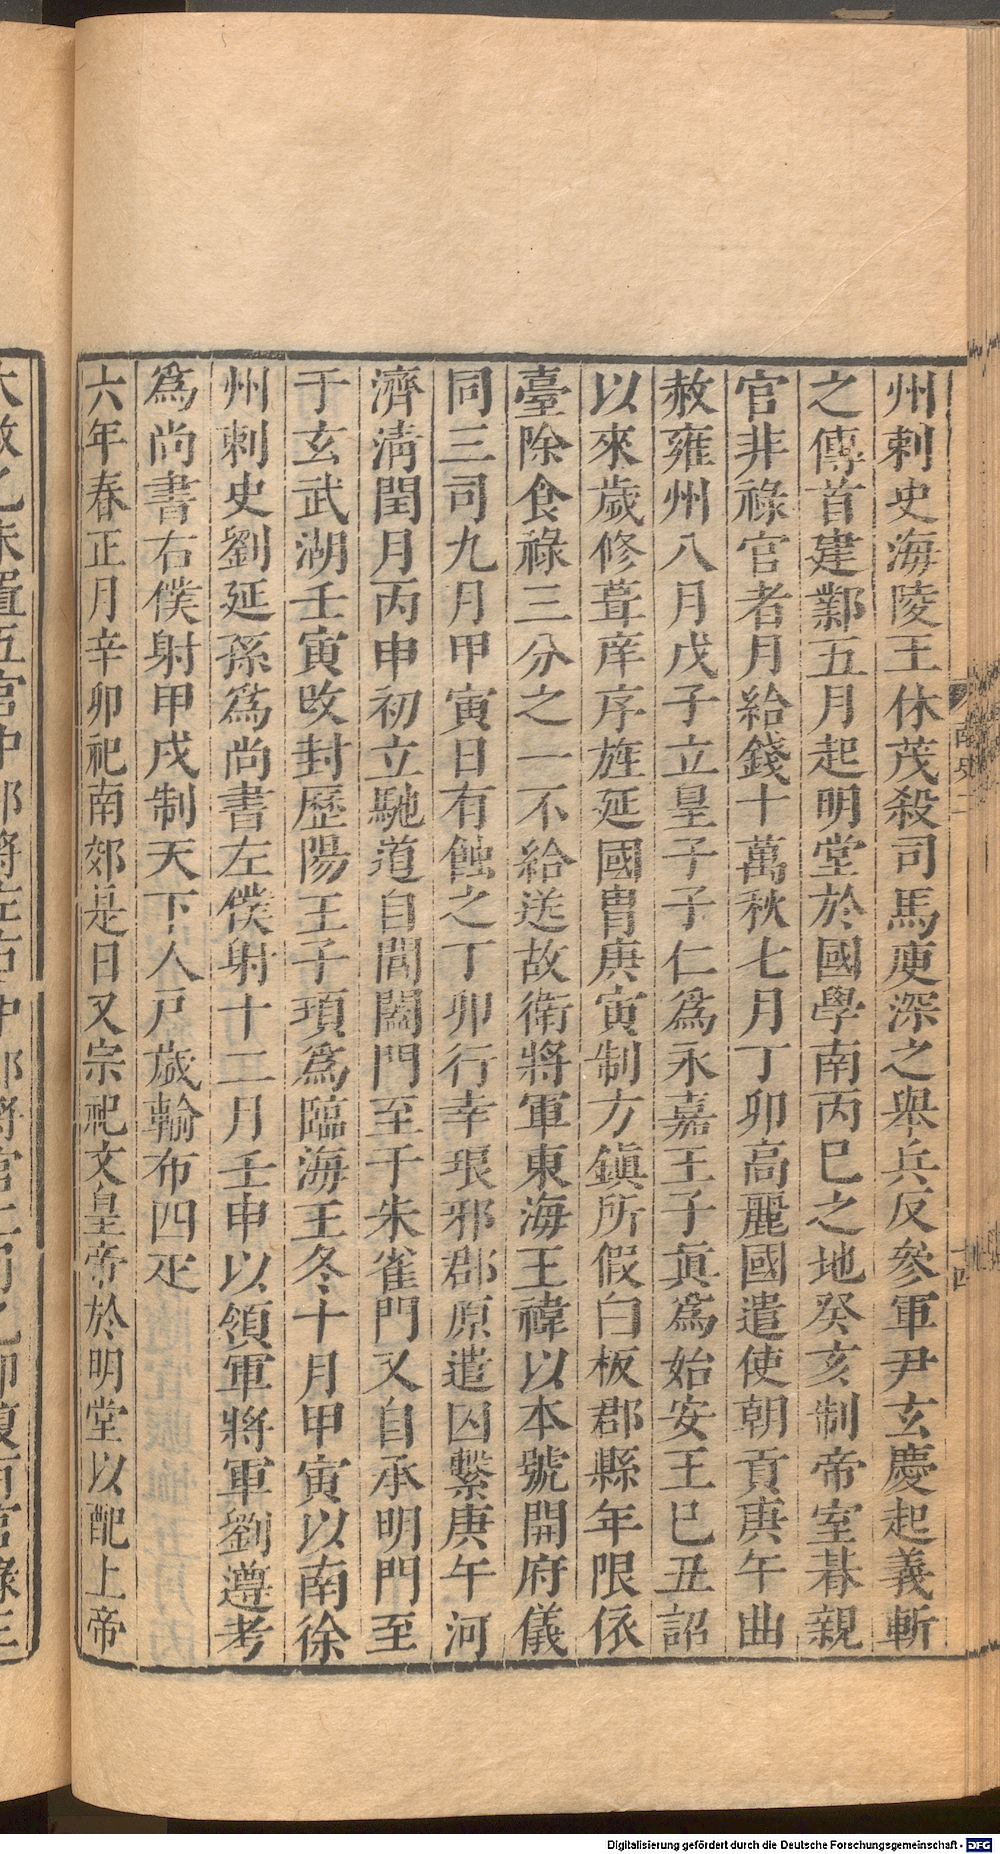 州刺史海陵王休茂殺司馬庾深之舉兵反參軍尹玄慶起義斬
之傳首建鄴五月起明堂於國學南丙巳之地癸亥制帝室朞親
官非祿官者月給錢十萬秋七月丁卯高麗國遣使朝貢庚午曲
赦雍州八月戊子立皇子子仁爲永嘉王子真爲始安王巳丑詔
以來歲修葺庠序旌延國冑庚寅制方鎮所假白板郡縣年限依
臺除食祿三分之一不給送故衛將軍東海王禕以本號開府儀
同三司九月甲寅日有蝕之丁卯行幸琅邪郡原遣囚繫庚午河
濟淸閏月丙申初立馳道自閶闔門至于朱雀門又自承明門至
于玄武湖壬寅改封歷陽王子頊爲臨海王冬十月甲寅以南徐
州刺史劉延孫爲尚書左僕射十二月壬申以領軍將軍劉遵考
爲尚書右僕射甲戌制天下人戸歲輸布四疋
六年春正月辛卯祀南郊是日又宗祀文皇帝於明堂以配上帝
南史二
十四
Digitalisierung gefördert durch die Deutsche Forschungsgemeinschaft - DFG